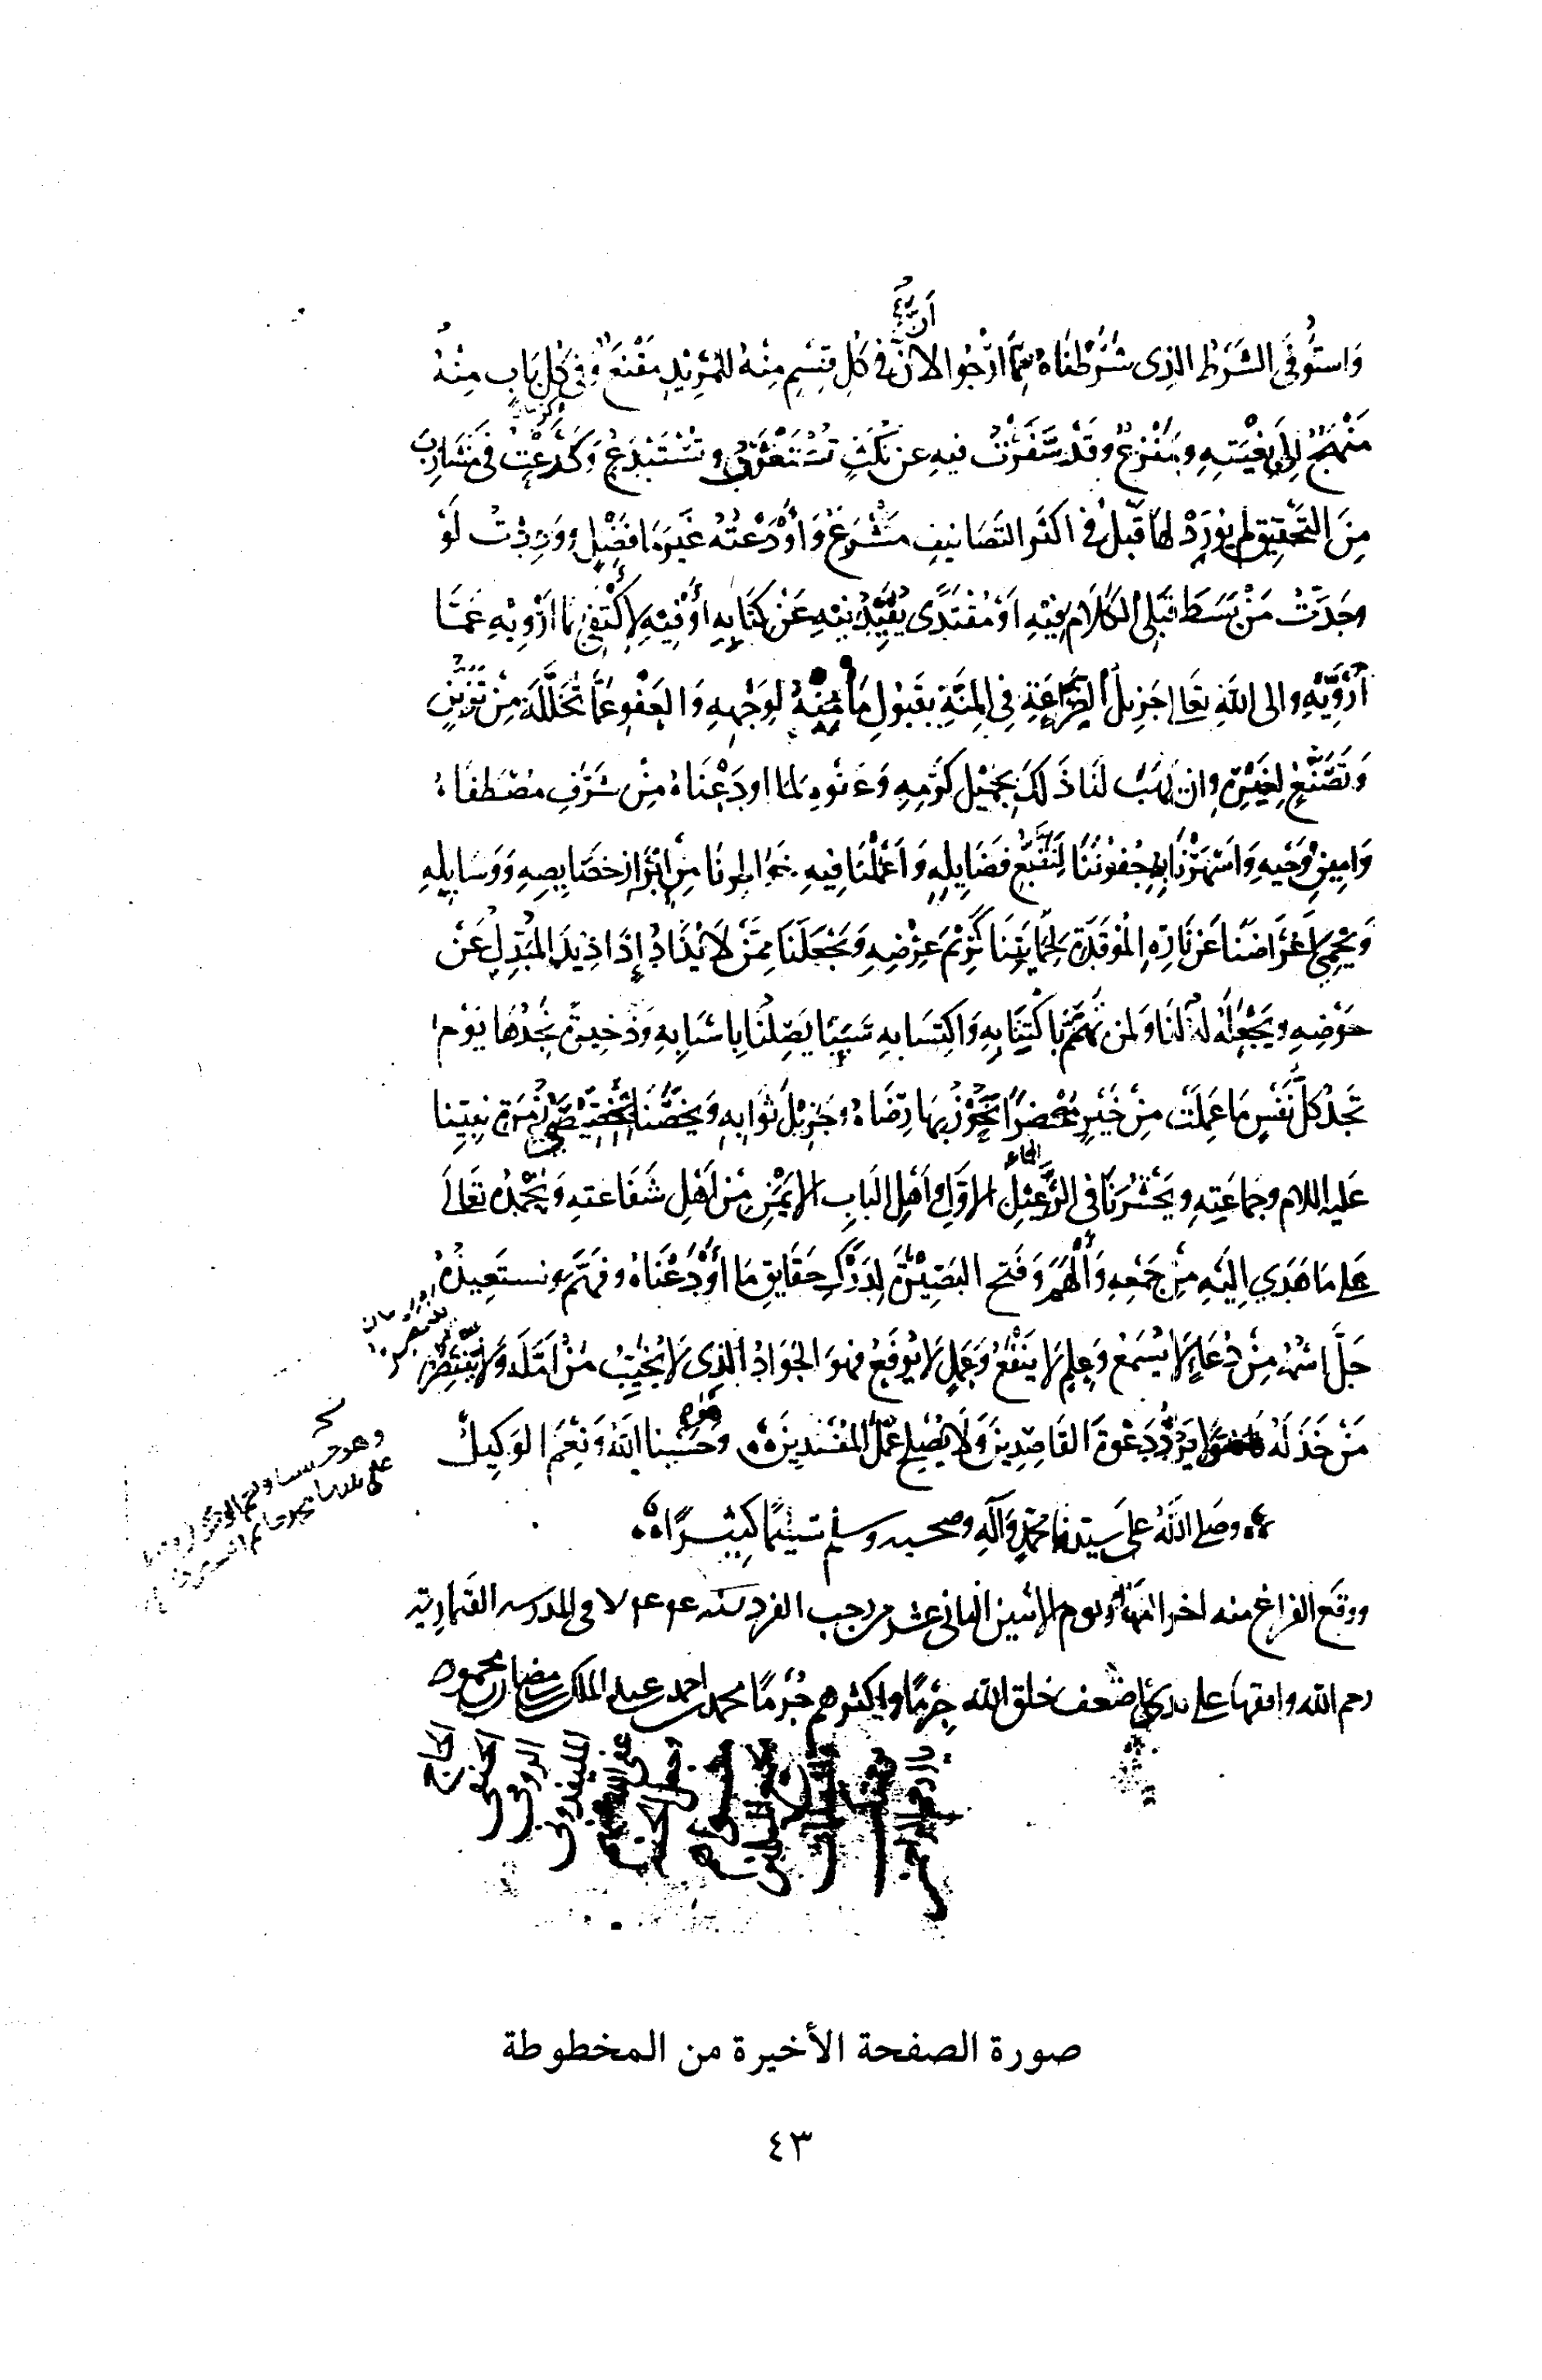 أن
وَاستُوفى الشَرَطُ الذِى شَرَطْنَاهُ مِمَّا ارْجُوا الان فى كل قِسْمٍ مِنهُ للمُرِيْدِ مَقْنَعٌ وَفى كُلِ بَابٍ مِنْهُ
مَنْهَجٌ إِلى بغْيَتِهِ ومَنْزِعٌ وقَدْ سَفَرْتُ فيهِ عن نكتٍ تُسْتَغْرَبُ وتُسْتَبْدَعُ وَكَرَعْتُ فى مَشَارِبَ
مِنَ التَحْقِيقِ لم يُورَدْ لهَا قَبلُ فى اكثَر التَصَانيفِ مَشْرَعٌ وَأوْدَعْتُهُ غَيْرَ مَا فَصْلٍ وَوَدِدْتُ لَوْ
وجَدْتُ مَنْ بَسَطَ قَبْلِى الكَلَام فِيْهِ اَوْ مُقْتَدًى يُفِيْدُنِيْهِ عَنْ كِتَابِهِ أوْ فِيْهِ لِاكْتَفِىَ بمَا ارْوِيْهِ عَمَّا
أُرَوِّيْهِ والى اللهِ تعَالى جَزِيلُ الضَّرَاعَةِ فى المِنَّةِ بقَبُولِ مَا مِنْهُ لِوَجْهِهِ وَالعَفْوِ عَمَّا تَخَلَّلَهُ مِنْ تَزَيُّنٍ
وَتَصَنُّعٍ لِغَيْرِهِ وان يَهَبَ لَنَا ذَلِكَ بجَمِيْلِ كَرَمِهِ وَعَفْوِهِ لما اودَعْنَاهُ مِنْ شَرَفِ مُصْطَفَاهُ
وَامِيْنِ وَحْيِهِ وَاسْهَرْنَا بِهِ جُفُونَنَا لِتَتَبُّعِ فَضَايِلِهِ وَاَعْمَلْنَا فِيْهِ خَوَاطِرنَا مِنْ اِبْرَازِ خَصَايِصِهِ وَوَسَايِلِهِ
وَيَحْمِىَ اَعْرَاضَنَا عَنْ نَارِهِ المُوقَدَةِ لِحِمَايَتِنَا كَرِيْمَ عِرْضِهِ وَيَجْعَلَنَا مِمَّنْ لَا يُذَادُ إِذَا ذِيْدَ المُبَدِّلُ عَنْ
حَوْضِهِ ويَجْعَلَهُ لَنَا وَلمن تَهَمَّمَ بِاكْتِتَابِهِ وَاكْتِسَابِهِ سَبَبًا يَصِلُنَا بِاَسْبَابِهِ وَذَخِيْرَةً نَجِدُهَا يَوْمَ
تَجِدُ كلُّ نَفْسٍ مَا عَمِلَتْ مِنْ خَيْرٍ مُحْضَرًا نَحُوْزُ بِهَا رِضَاهُ وجَزِيْلَ ثَوَابِهِ وَيَخُصَّنَا بخِصِّيْصَى زُمْرَةِ نبِيِّنا
عَليه السلام وجمَاعَتِهِ ويَحْشُرَنَا فى الرَّعِيْلِ الاوَّلِ وَاهْلِ البَابِ الاَيْمَنِ مِنْ اَهْلِ شَفَاعته وَنَحْمَدُهُ تَعَالَى
عَلى مَا هَدَى اِلَيْهِ مِنْ جَمْعِهِ وَأَلْهَمَ وَفَتَحَ البَصِيْرَةَ لِدَرْكِ حَقَايِقِ مَا أوْدَعْنَاهُ وفَهَّمَ ونستَعِيذُهُ
جَلَّ اسْمُهُ مِنْ دُعَاءٍ لَا يُسْمَعُ وَعِلْمٍ لَا يَنْفَعُ وَعَمَلٍ لَا يُرْفَعُ فهوَ الجَوَادُ الذِى لَا يُخَيِّبُ مَنْ اَمَّلَهُ وَلَا يَنْتَصِرُ
مَنْ خَذَلَهُ وَلا يَرُدُّ دَعْوَةَ القَاصِدِيْنَ وَلَا يُصْلِحُ عَمَلَ المُفْسِدِيْنَ وَهُوَ حَسْبُنا اللهُ وَنِعْمَ الوَكِيلُ
وصَلى اللهُ عَلى سَيِّدِنَا مُحَمَّدٍ وَآلِهِ وصحبه وسلم تَسْلِيْمًا كَثِيْرًا
ووقَع الفراغ منه اخر النهار يوم الاثنين الثانى عشر من رجب الفرد سنه فى المدرسه القَيمَازِية
رحم الله واقفها على يدى اضعف خلق الله جِرْمًا واكثرهم جُرْمًا محمد بن احمد بن عبد الملك بن رمضان بن محمود
الحاج الحنفى
صورة الصفحة الأخيرة من المخطوطة
٤٣